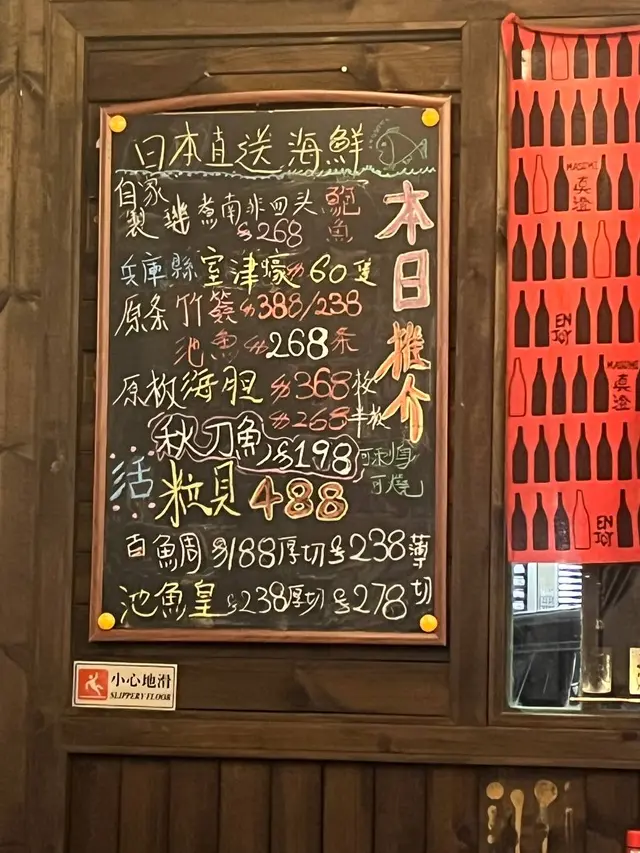 日本直送海鮮
本日推介
自家製 煮南非四头鮑魚
$268
兵庫縣室津蠔$60隻
原条竹簽$388/238
池魚$268条
原板海胆$368板
$268半板
秋刀魚$198可刺身可燒
活粒貝488
白魚周$188厚切$238薄切
池魚皇$238厚切$278切
小心地滑
SLIPPERY FLOOR
MASUMI
真澄
ENJOY
MASUMI
真澄
ENJOY